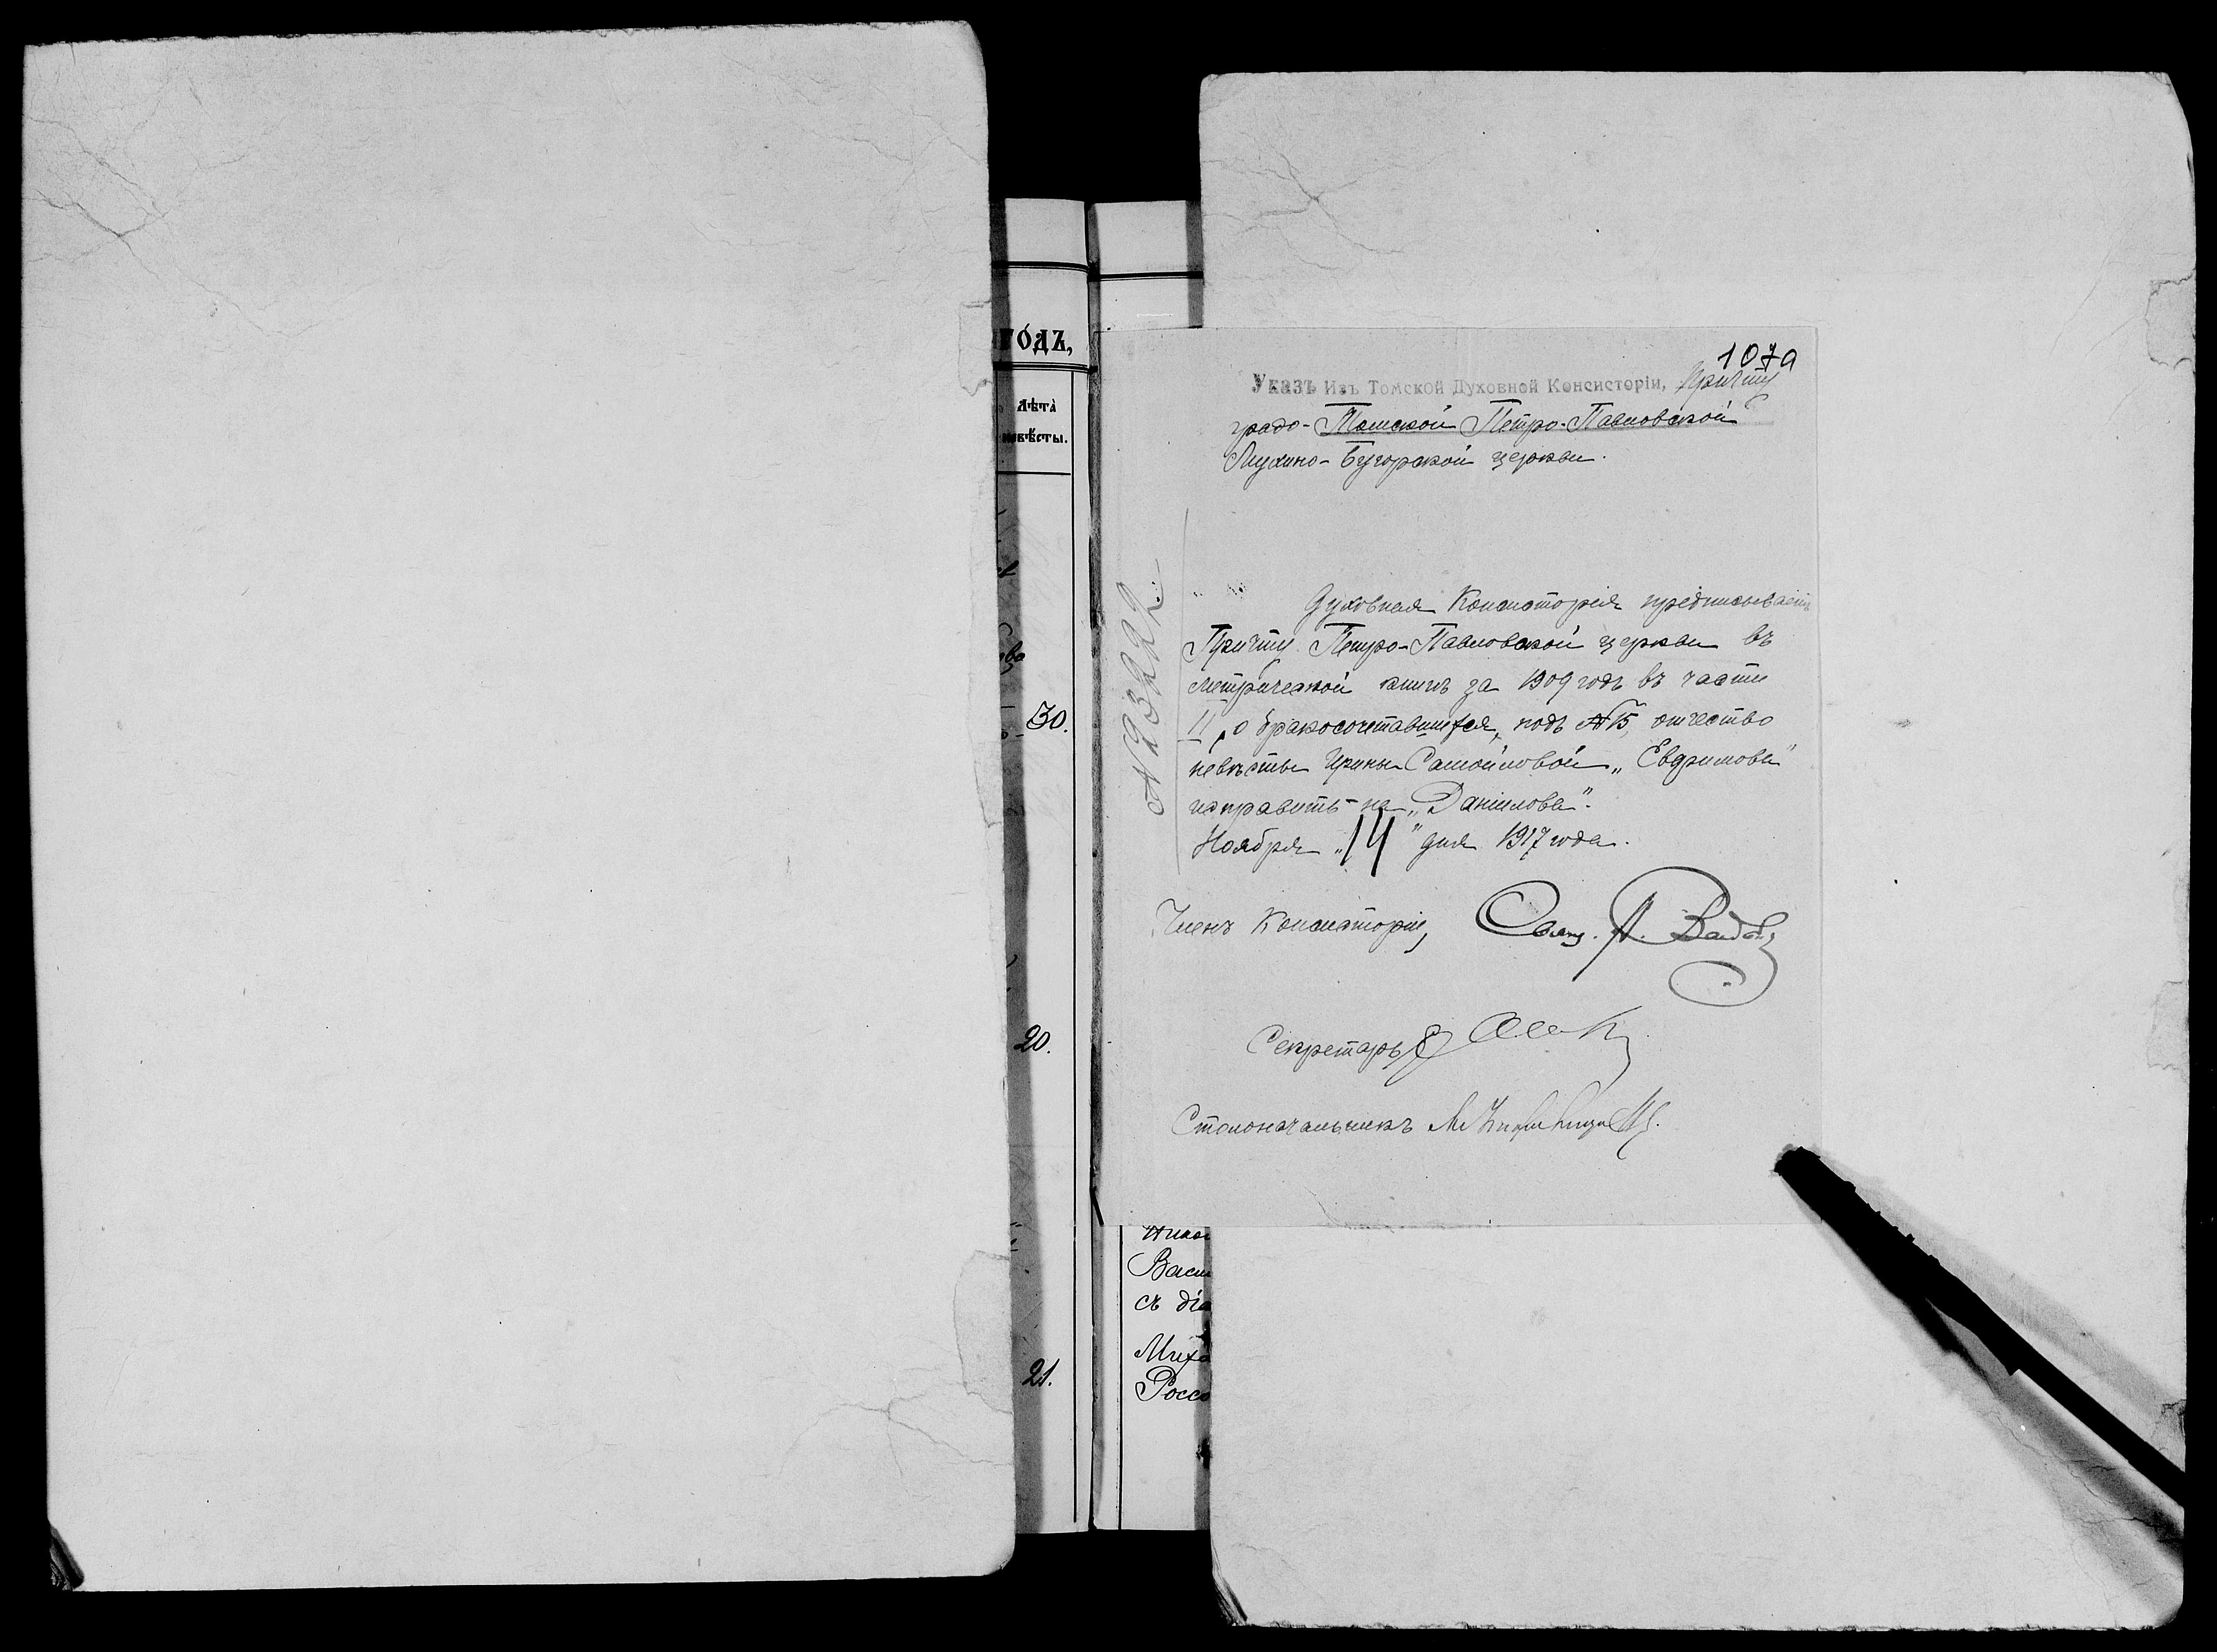 ГОДЪ,
лѣта
невѣсты.
30.
20.
21.
107а
Указъ Изъ Томской Духовной Консисторіи, Причту
градо-Томской Петро-Павловской
Мухино-Бугорской церкви.
№ 23222
Духовная Консисторія предписываетъ
Причту Петро-Павловской церкви въ
метрической книгѣ за 1909 годъ въ части
II, о бракосочетавшихся, подъ № 15, отчество
невѣсты Ирины Самойловой „Евфимова"
исправить на „Даніилова".
Ноября „14" дня 1917 года.
Членъ Консисторіи, Свящ. А.
Секретарь
Столоначальникъ М.
Васи
съ діа
Миха
Росс